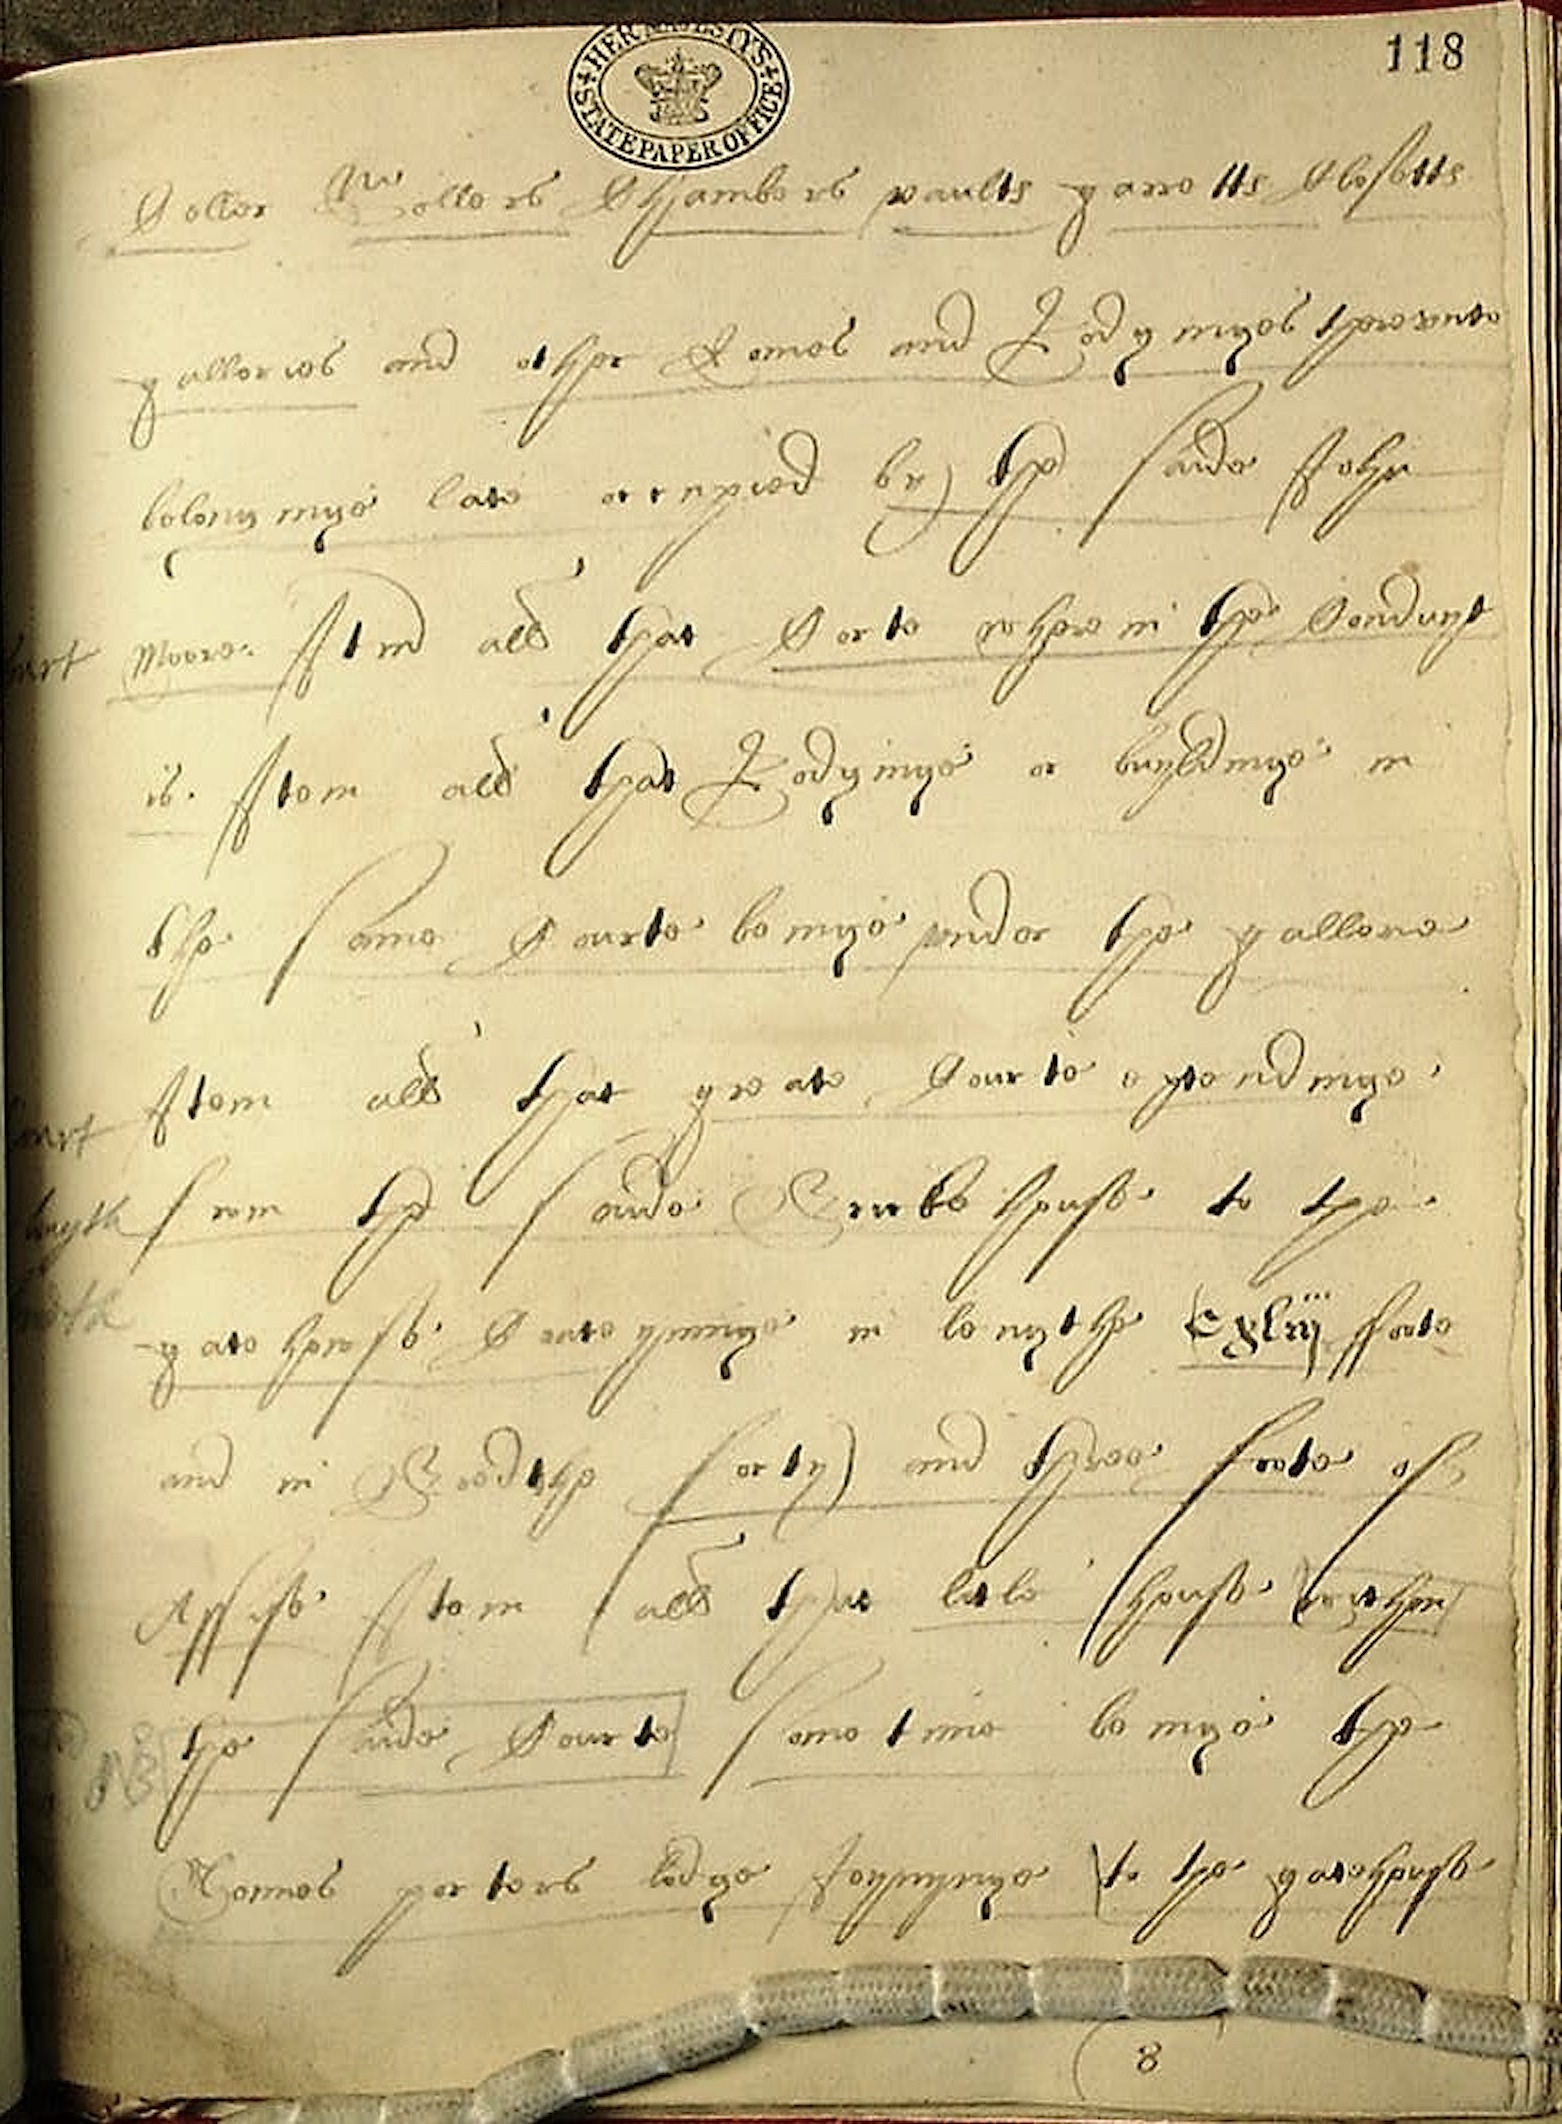 118
HER MAJESTY'S STATE PAPER OFFICE
Seller Sollers Chambers vaults garretts Closetts
galleries and other Romes and Lodgynges therevnto
belongynge late occupied by the saide John
Moore. Itm all that Corte wherein the Conduyt
is. Item all that Lodgynge or buyldynge in
the same Courte beinge vnder the gallerie
Item all that greate Courte extendinge
from the saide house to the
gatehouse Conteyninge in lengthe Cxliij foote
and in Bredthe forty and three foote of
Assise Item all that litle house within
the saide Courte sometime beinge the
porters lodge Joynynge to the gatehouse
8